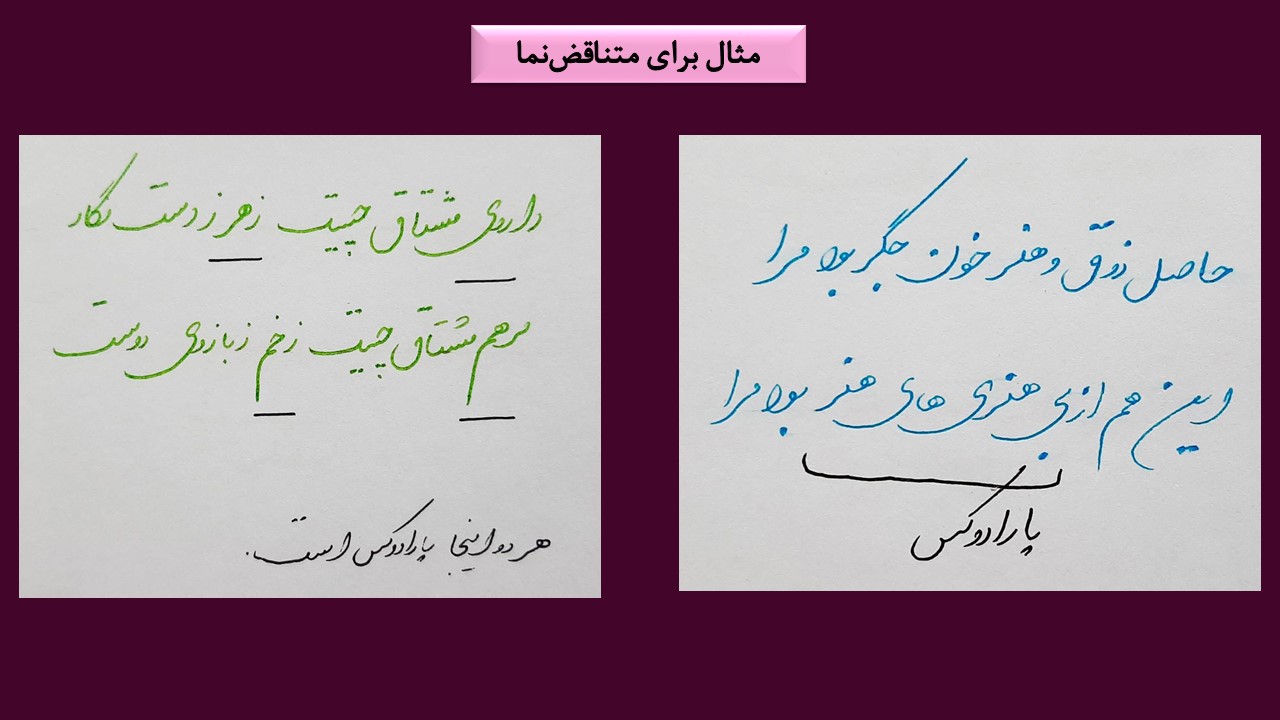 مثال برای متناقض‌نما
حاصل ذوق و هنر خون جگر بود مرا
این هم از بی هنری های هنر بود مرا
پارادوکس
داروی مشتاق چیست زهر ز دست نگار
مرهم مشتاق چیست زخم ز بازوی دوست
هر دو اینجا پارادوکس است.